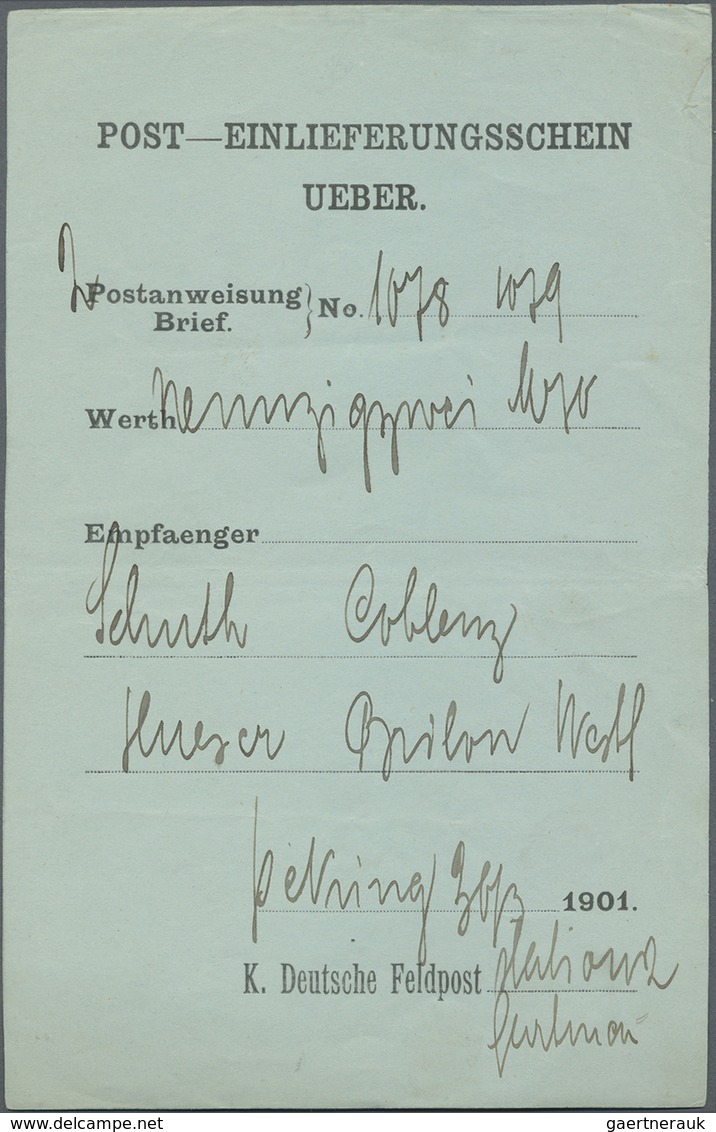 POST—EINLIEFERUNGSSCHEIN
UEBER.
2 Postanweisung } No. 1078 1079
Brief.
Werth neunzigzwei
Empfaenger
Schuth Coblenz
Hueser Brilon Westf
Peking 1901.
K. Deutsche Feldpost Station 2
gaertnerauk